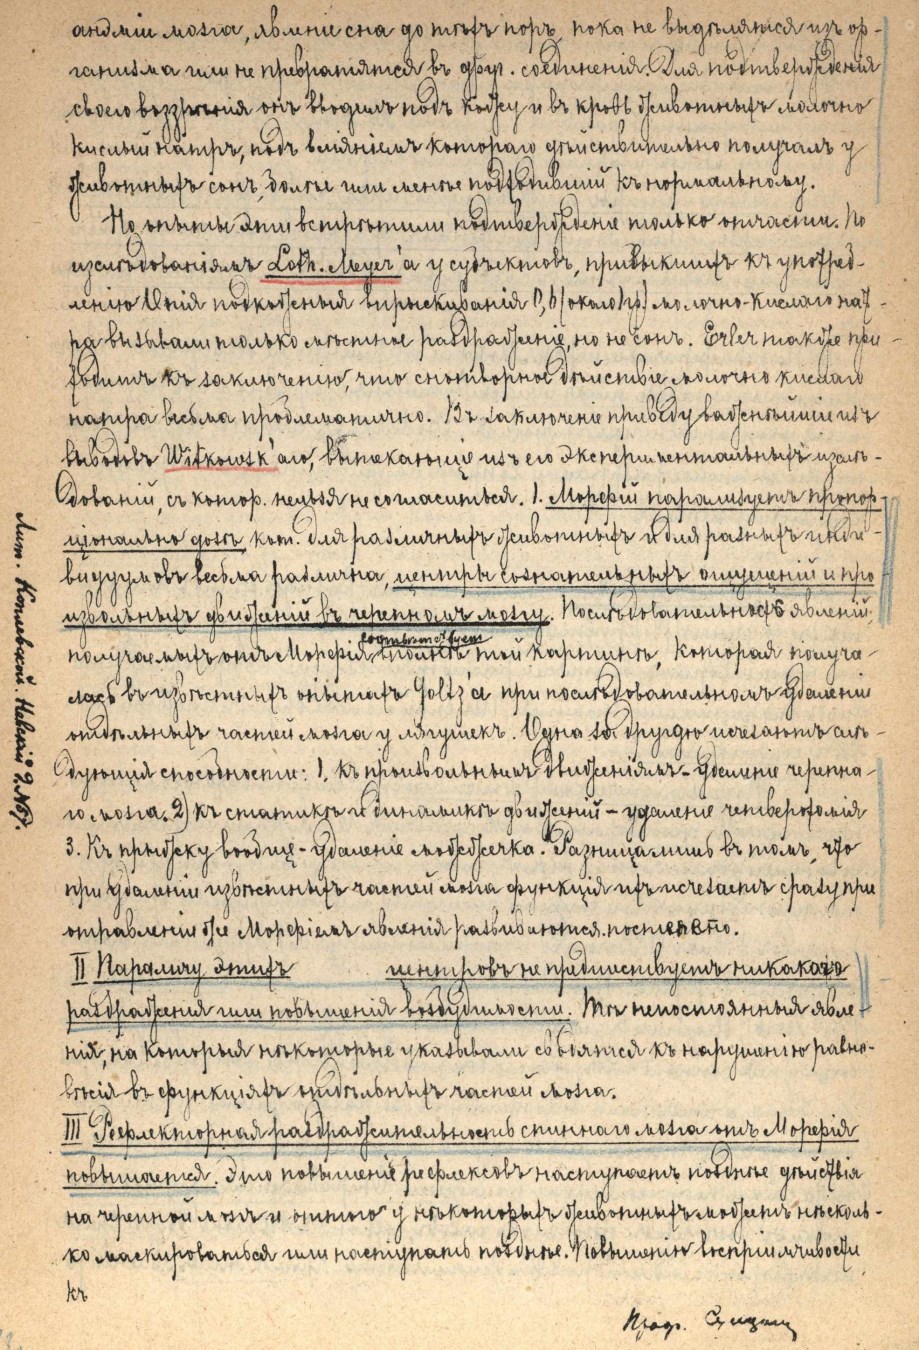 анэміи мозга, явленіе сна до тѣхъ поръ, пока не выдѣлятся изъ ор-
ганизма или не превратятся въ друг. соединенія. Для подтвержденія
своего воззрѣнія онъ вводилъ подъ кожу и въ кровь животныхъ молочно
кислый натръ, подъ вліяніемъ котораго дѣйствительно получалъ у
животныхъ сонъ, болѣе или менѣе подходившій къ нормальному.
Но опыты эти встрѣтили подтвержденіе только отчасти. По
изслѣдованіямъ Loth. Meyer'а у субъектовъ, привыкшихъ къ употреб-
ленію Опія подкожныя впрыскиванія молочно-кислаго нат-
ра вызывали только мѣстное раздраженіе, но не сонъ. Erler также при
ходитъ къ заключенію, что снотворное дѣйствіе молочно кислаго
натра весьма проблематично. Въ заключеніе приведу важнѣйшіе изъ
выводовъ Witkowsk'аго, вытекающіе изъ его экспериментальныхъ изслѣ-
дованій, съ котор. нельзя не согласиться. 1. Морфій парализуетъ пропор-
ціонально дозѣ, кот. для различныхъ животныхъ и для разныхъ инди-
видуумовъ весьма различна, центры сознательныхъ ощущеній и про
извольныхъ движеній въ черепномъ мозгу. Послѣдовательность явленій,
соотвѣтствуетъ
получаемыхъ отъ Морфія вполнѣ той картинѣ, которая получа-
лась въ извѣстныхъ опытахъ Goltz'а при послѣдовательномъ удаленіи
отдѣльныхъ частей мозга у лягушекъ. Одна за другою исчезаютъ слѣ-
дующія способности: 1, къ произвольнымъ движеніямъ - удаленіе черепна-
го мозга. 2) къ статикѣ и динамикѣ движеній - удаленіе четверохолмія
3. Къ прыжку вообще - удаленіе мозжечка. Разница лишь въ томъ, что
при удаленіи извѣстныхъ частей мозга функція ихъ исчезаетъ сразу при
отравленіи же Морфіемъ явленія развиваются постепенно.
II Параличу этихъ центровъ не предшествуетъ никакого
раздраженія или повышенія возбудимости. Тѣ непостоянныя явле-
нія, на которыя нѣкоторые указывали сводятся къ нарушенію равно-
вѣсія въ функціяхъ отдѣльныхъ частей мозга.
III Рефлекторная раздражительность спиннаго мозга отъ Морфія
повышается. Это повышеніе рефлексовъ наступаетъ позднѣе дѣйствія
на черепной мозгъ и оттого у нѣкоторыхъ животныхъ можетъ нѣсколь-
ко маскироваться или наступать позднѣе. Повышенію воспріимчивости
къ
Проф.
Лит. Невскій